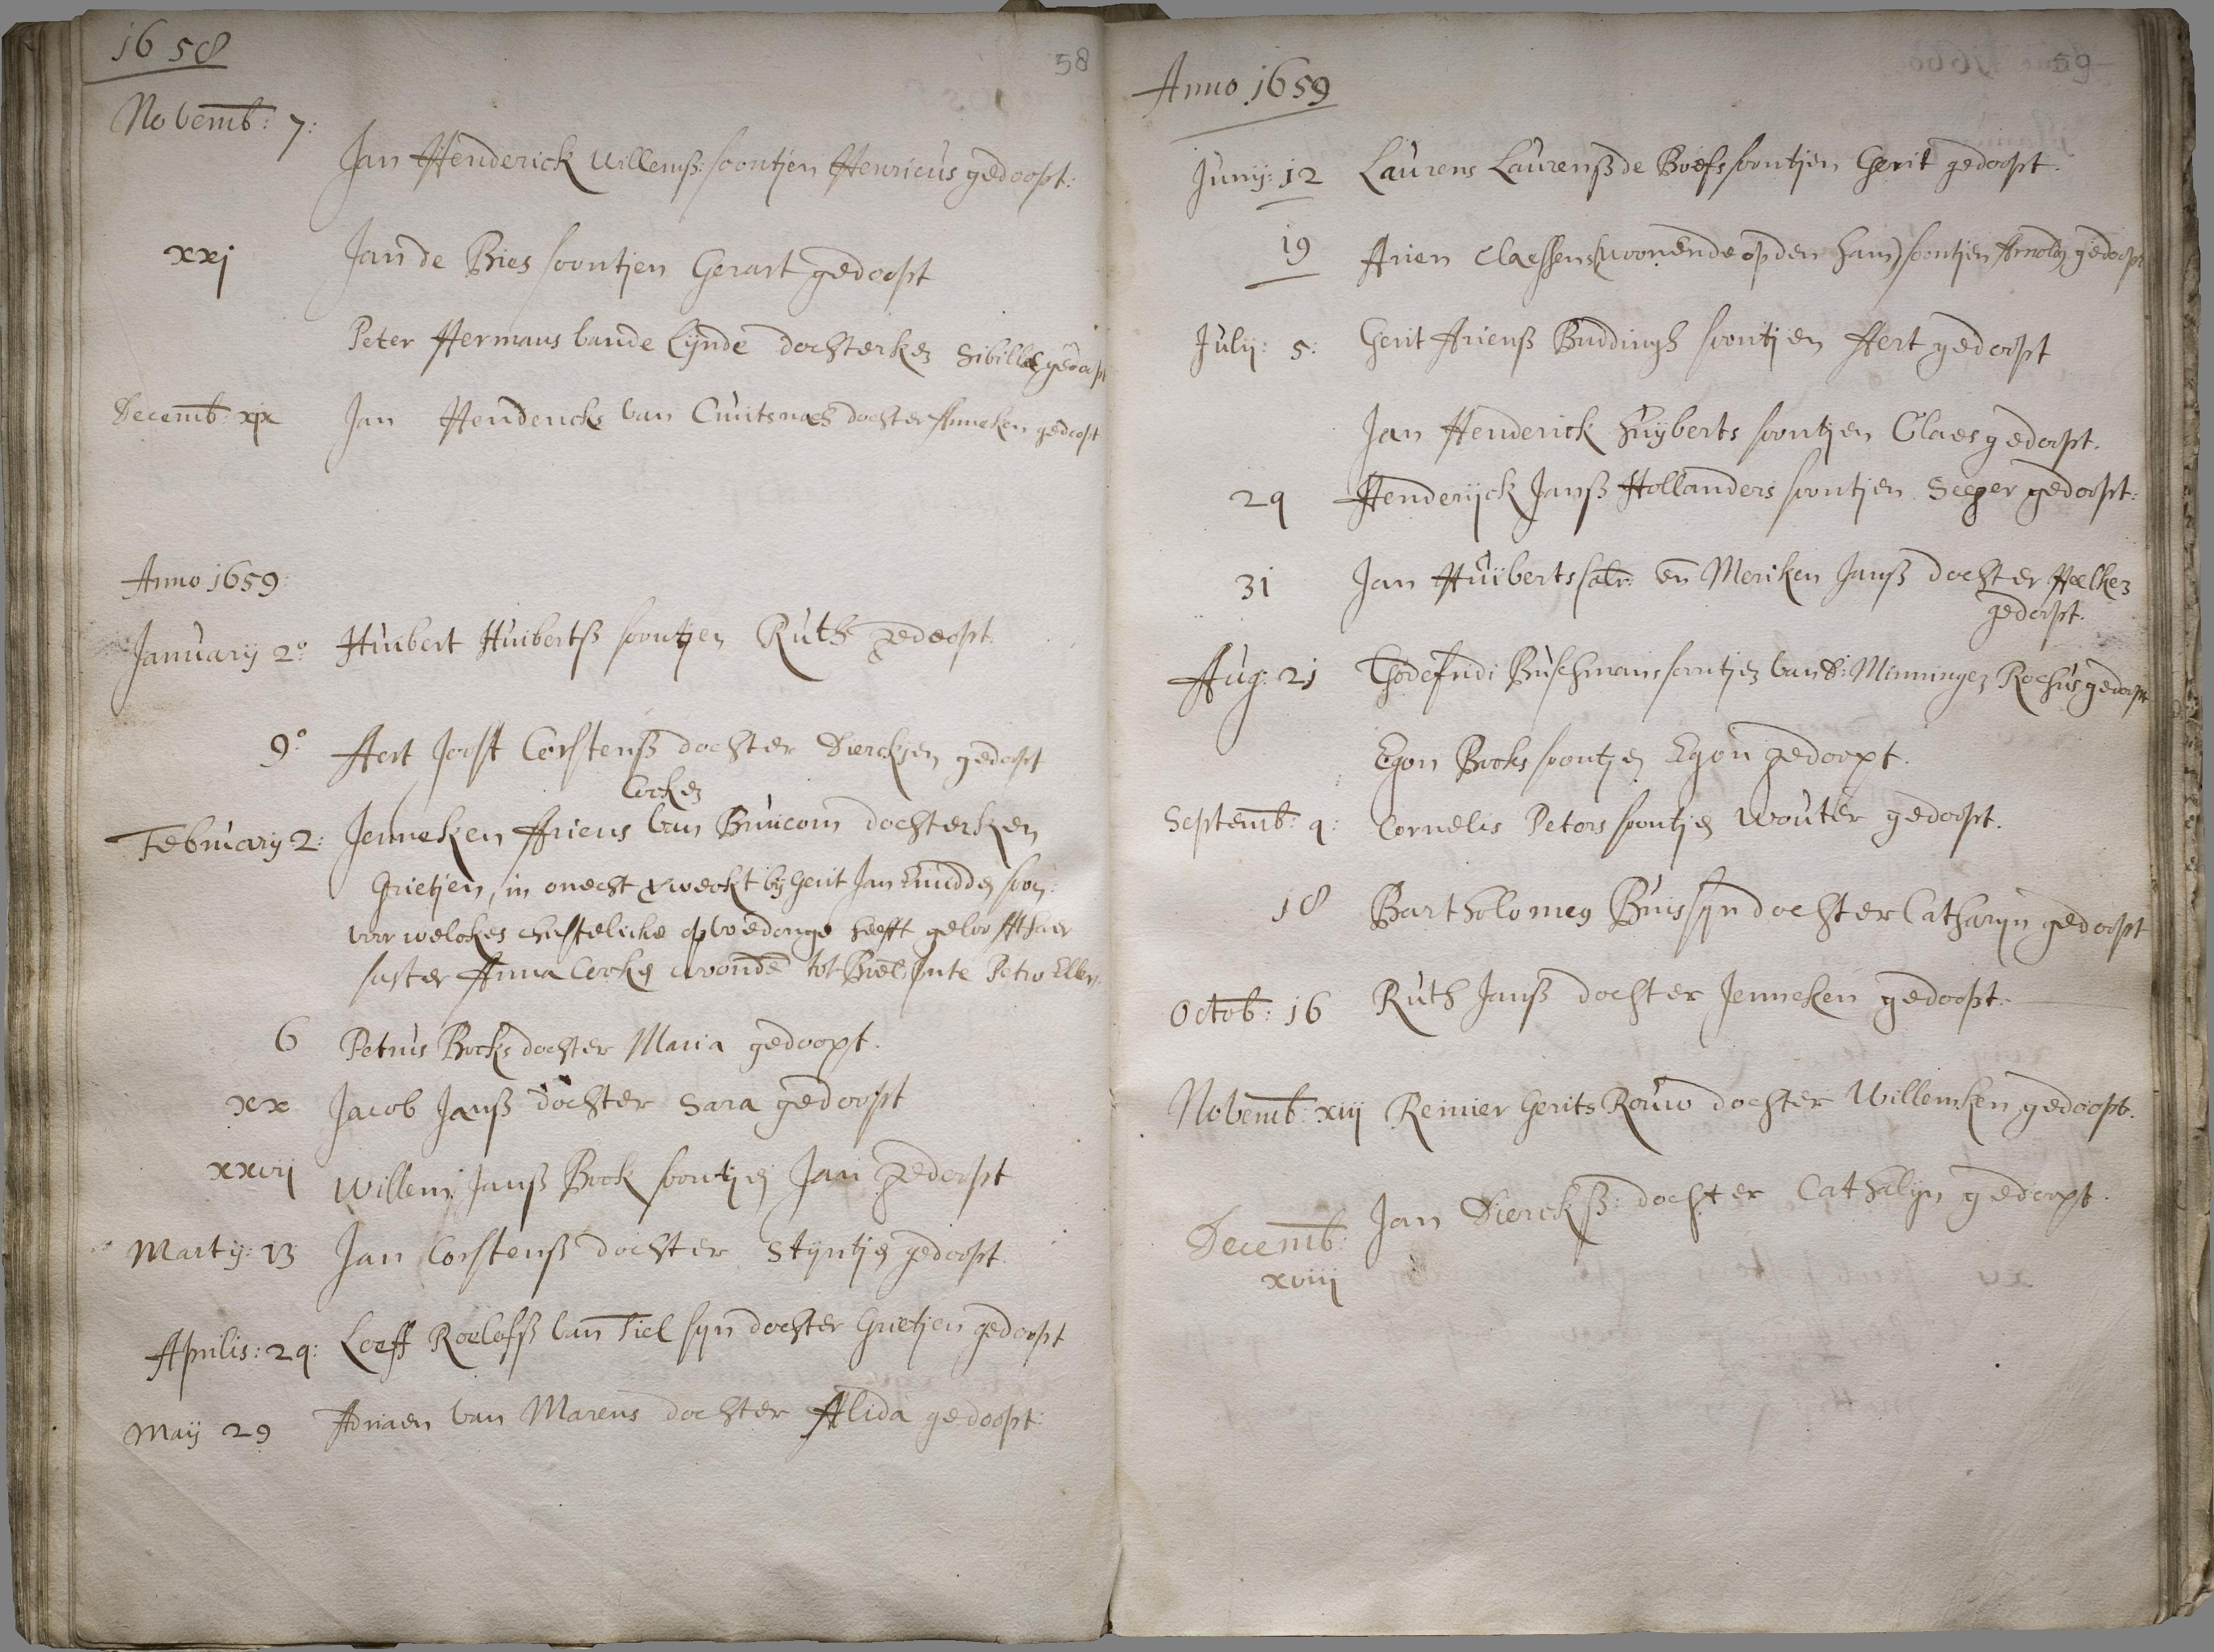 1658
58
Novemb: 7:
Jan Henderick Willemß: soontjen Henricus gedoopt:
xxj Jan de Bies soontjen Gerart gedoopt
Peter Hermans vande Lijnde dochterken Sibilla gedoopt
Decemb: xix Jan Hendericks van dochter Anneken gedoopt
Anno 1659:
January 2º: Huibert Huibertß soontjen Ruth gedoopt.
9º Aert Joost Corstenß dochter Dierckjen gedoopt
Cocken
February 2: Jenneken Ariens van Buucom dochterken
Grietjen, in onecht verweckt bij Gerit Jan soon:
voor welckes christelicke opvoedonge heeft gelooft haer
suster Anna Cocken wonende tot
6 Petrus Bocks dochter Maria gedoopt.
xx Jacob Janß dochter Sara gedoopt
xxvij Willem Janß Bock soontjen Jan gedoopt
Martij: 13 Jan Corstenß dochter Stijntjen gedoopt.
Aprilis: 24: Loeff Roelofß van Tiel sijn dochter Grietjen gedoopt
Maij 29 Adriaen van Marens dochter Alida gedoopt:
59
Anno 1659
Junij: 12 Laurens Laurenß de Boefs soontjen Gerit gedoopt.
19 Arien Claessens (woonende op den ham) soontjen Arnoldus gedoopt
Julij: 5: Gerit Arienß Buddingh soontjen Aert gedoopt
Jan Henderick Huijberts soontjen Claes gedoopt.
24 Henderijck Janß Hollanders soontjen Seger gedoopt:
31 Jan Huiberts en Meriken Janß dochter Aelken
gedoopt.
Aug: 21 Godefridi Buschmans soontjen van Rochus gedoopt
Egon Bocks soontjen Egon gedoopt.
Septemb: 4: Cornelis Peters soontjen Wouter gedoopt.
18 Bartholomeus Buis sijn dochter Catharijn gedoopt
Octob: 16 Ruth Janß dochter Jenneken gedoopt:
Novemb: xiij Reinier Gerits Rouw dochter Willemken gedoopt.
Decemb: Jan Dierckß: dochter Cathalijn gedoopt.
xviij